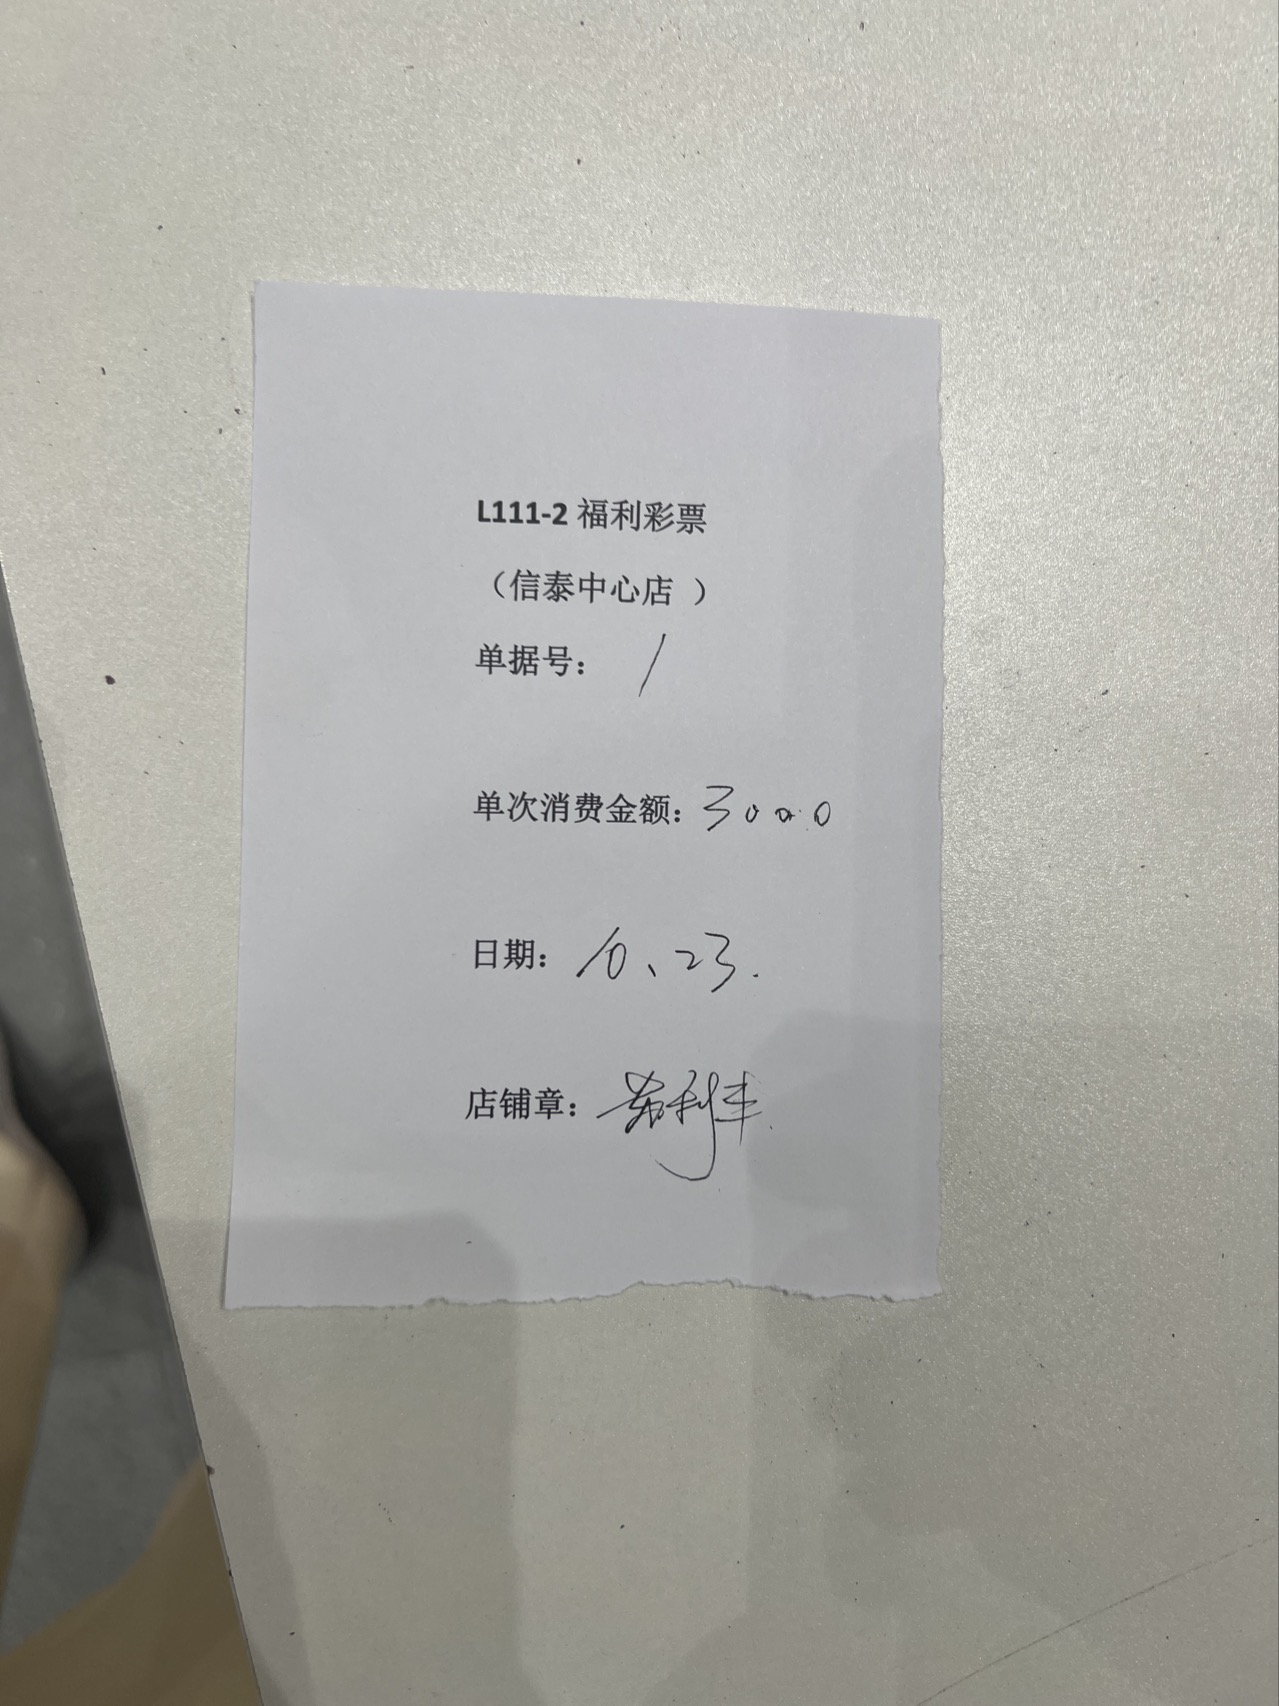 L111-2 福利彩票
（信泰中心店 ）
单据号： /
单次消费金额：3000
日期： 10、23.
店铺章： 苏利丰